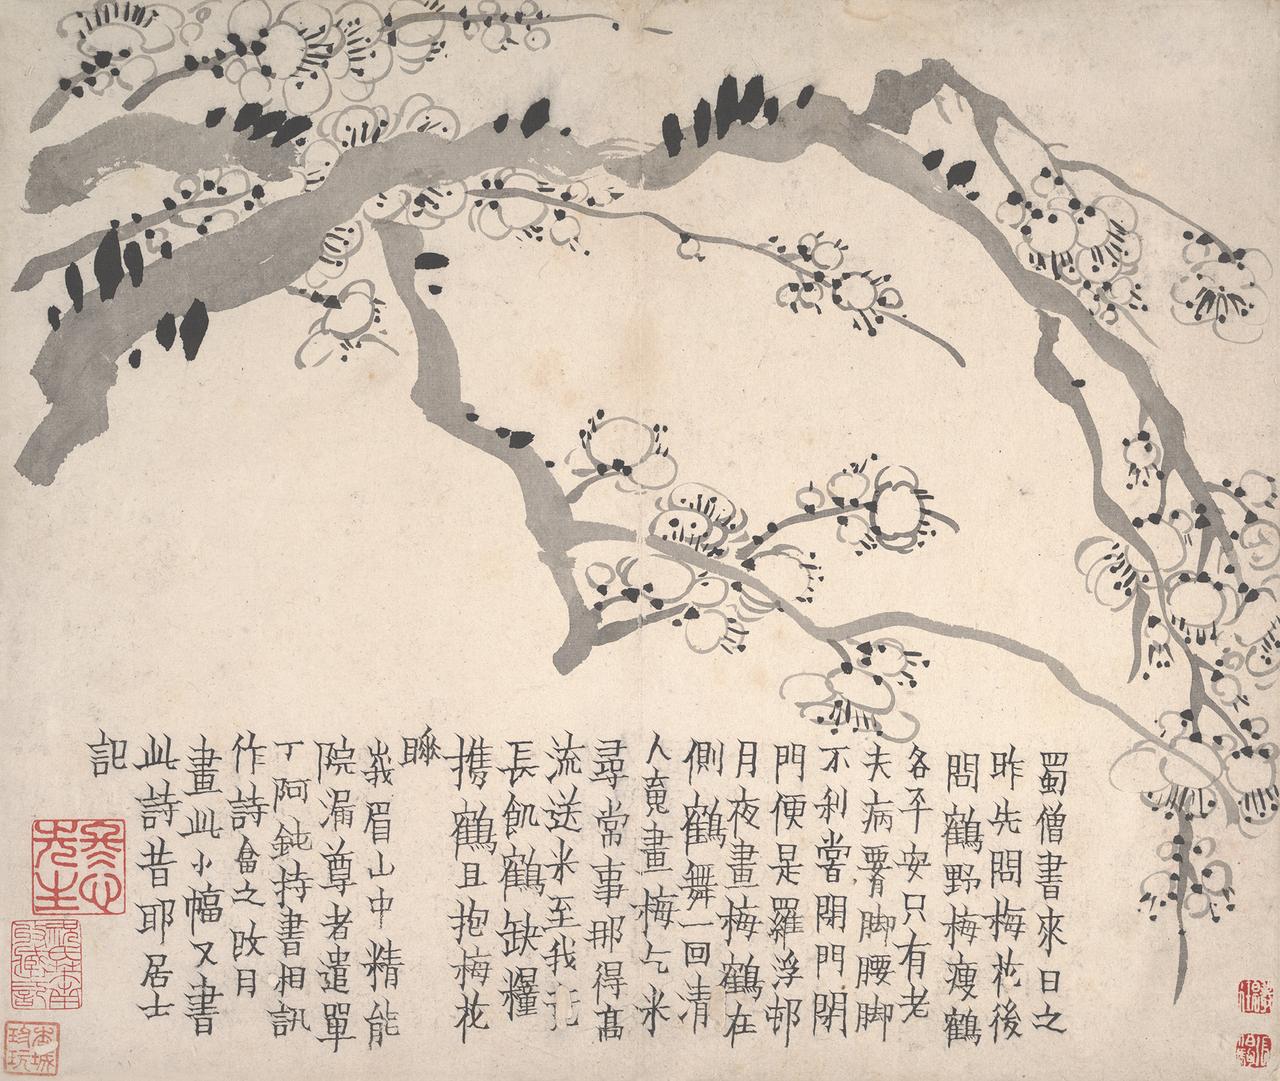 蜀僧書來日之
昨先問梅花後
問鶴野梅瘦鶴
各平安只有老
夫病要脚腰脚
不利嘗閉門閉
門便是羅浮邨
月夜畫梅鶴在
側鶴舞一回清
人䰟畫梅乞米
尋常事那得高
流送米至我
長飢鶴缺糧
携鶴且抱梅花
睡
峩眉山中精能
院漏尊者遣單
丁阿鈍持書相訊
作詩畣之改月
畫此小幅又書
此詩昔耶居士
記